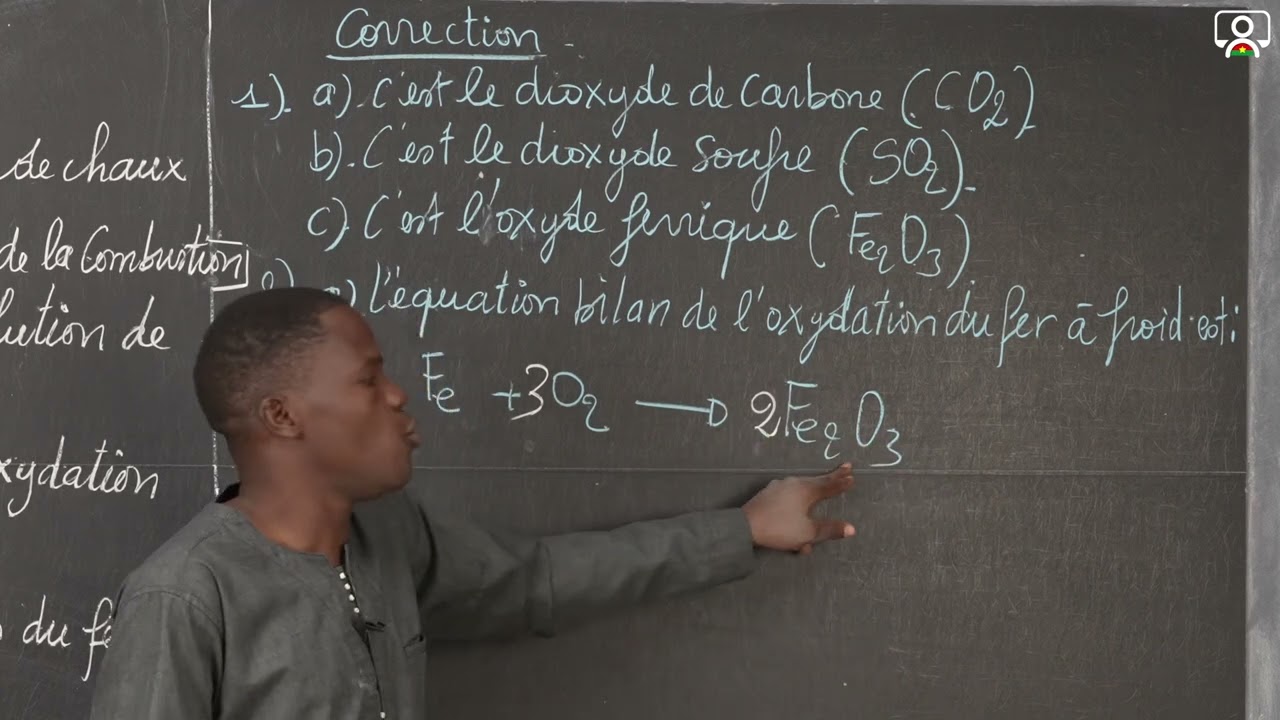 Correction
1). a). C'est le dioxyde de Carbone (CO2).
b). C'est le dioxyde soufre (SO2).
c). C'est l'oxyde ferrique (Fe2O3).
2) a) L'équation bilan de l'oxydation du fer à froid est:
Fe + 3O2 → 2Fe2O3
de chaux
de la Combustion
lution de
xydation
du fe